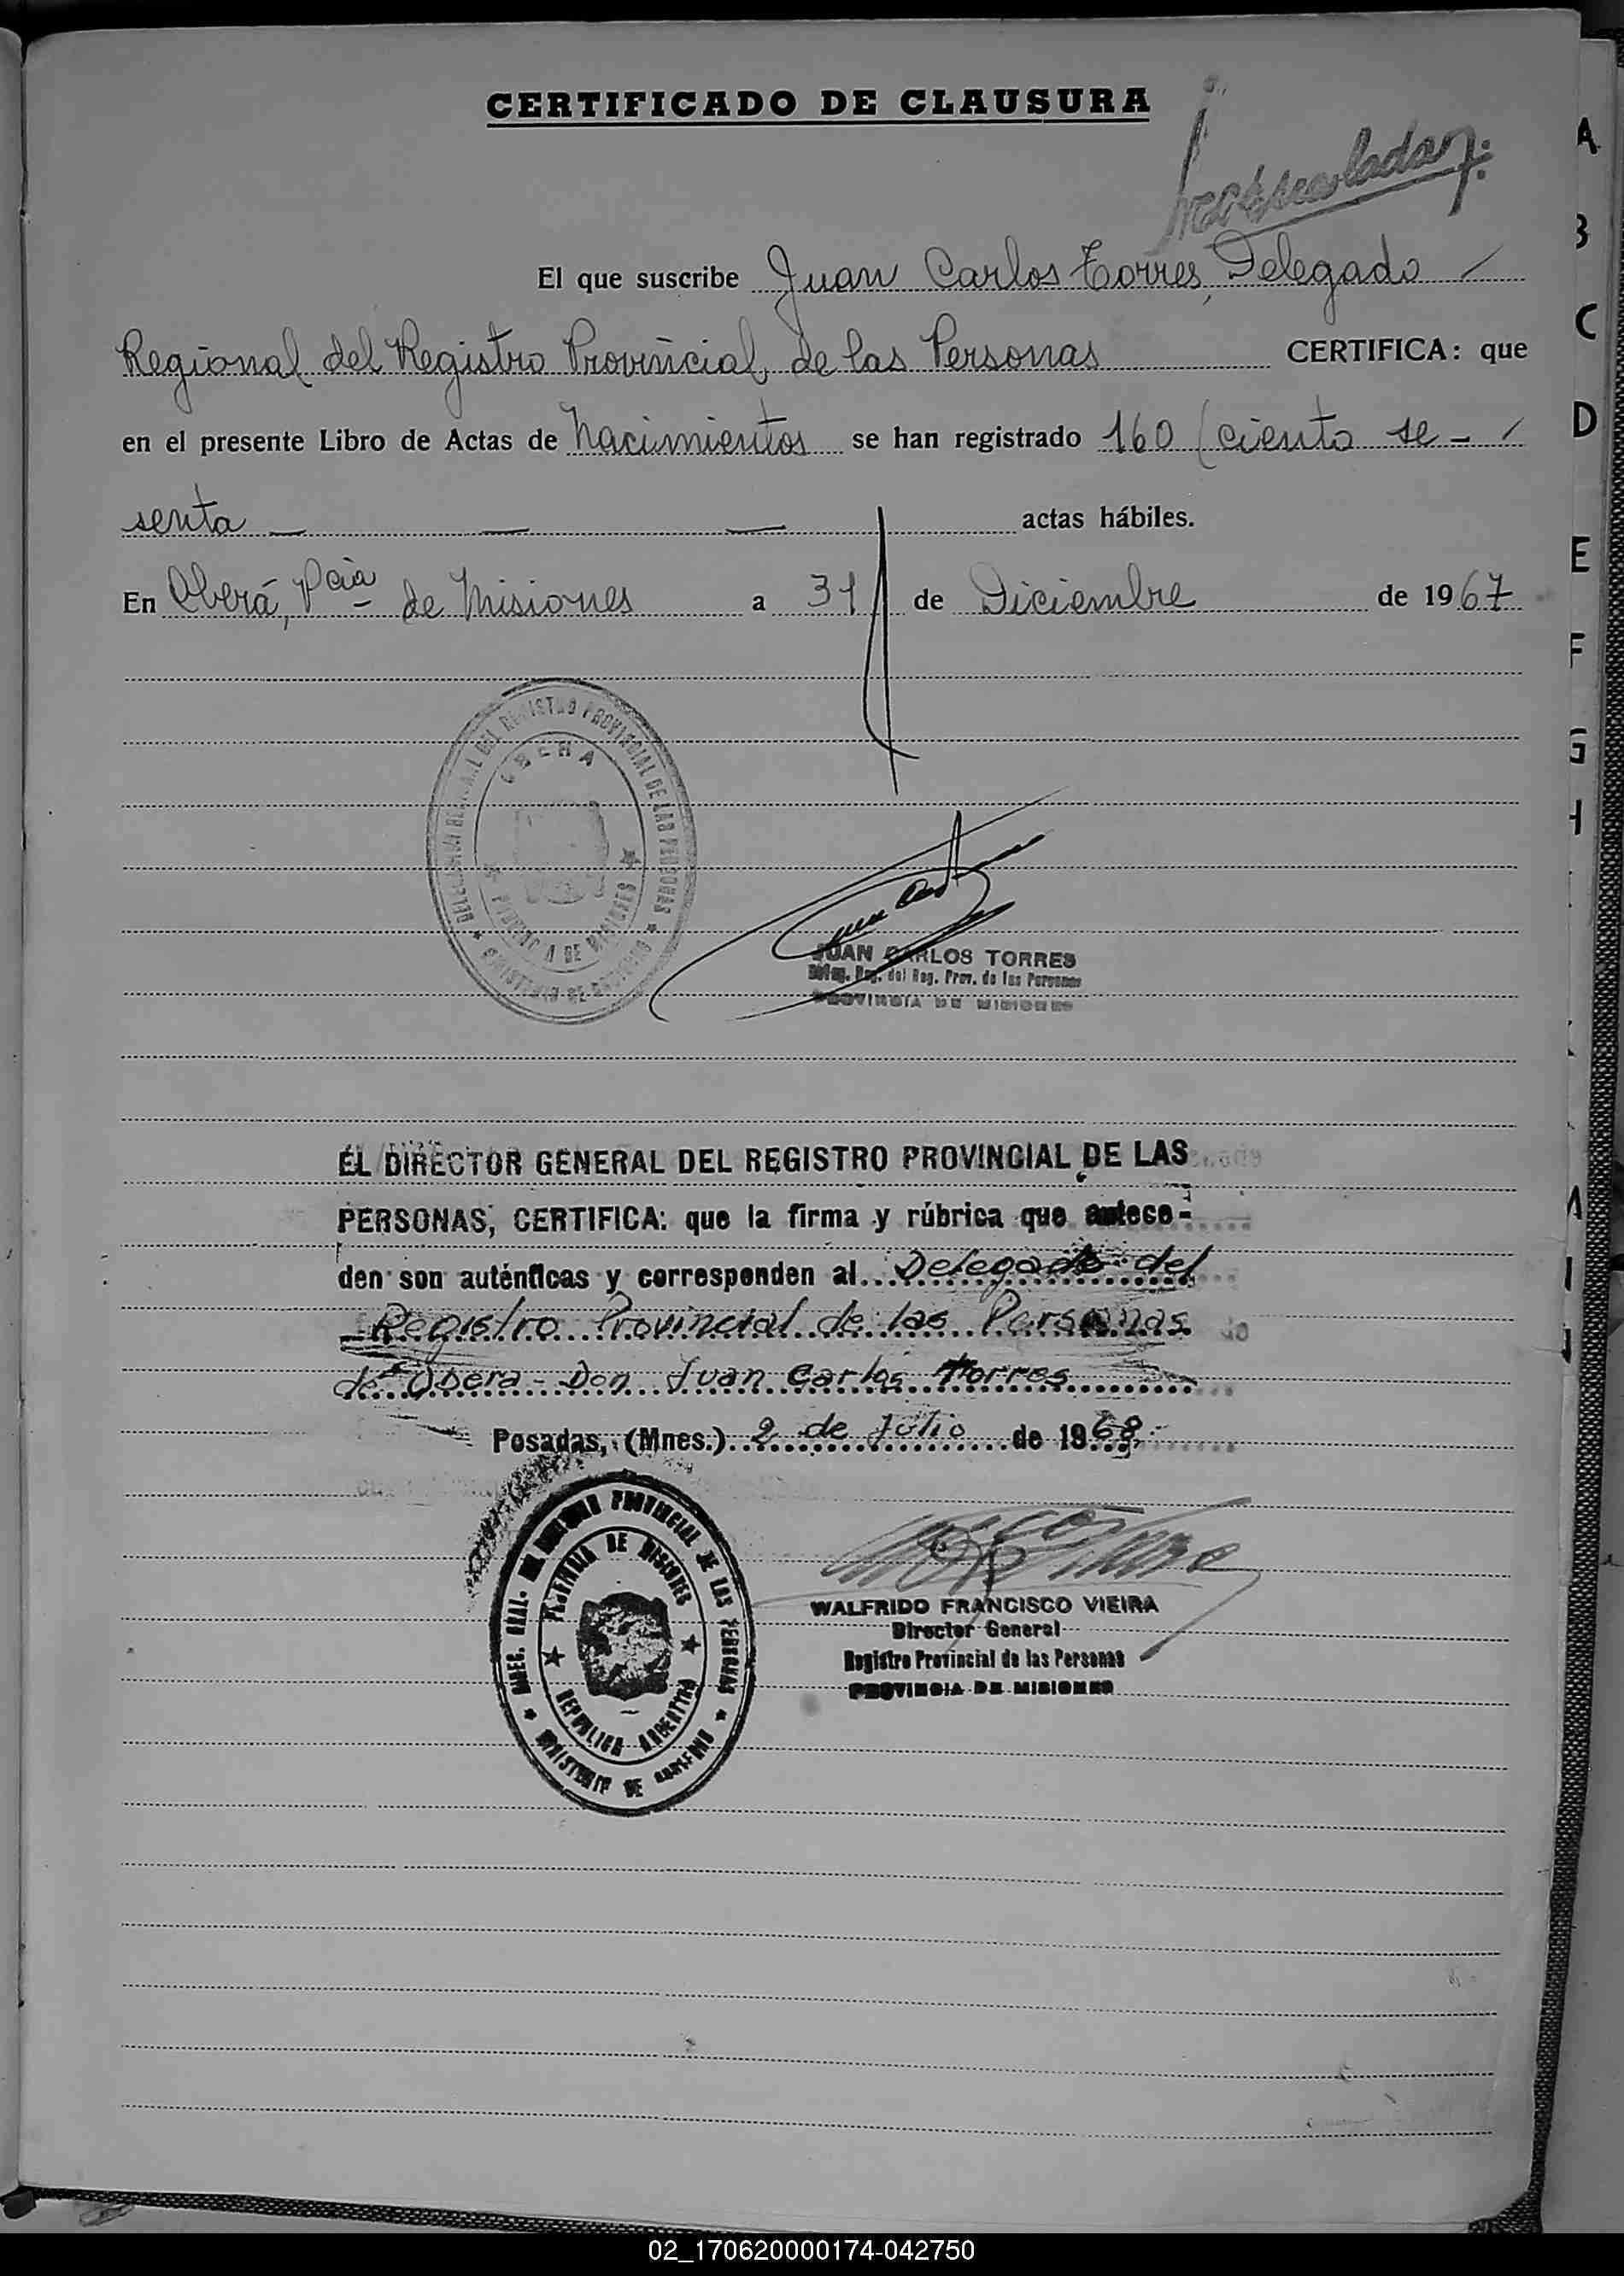 CERTIFICADO DE CLAUSURA
El que suscribe Juan Carlos Torres, Delegado
Regional del Registro Provincial, de las Personas CERTIFICA: que
en el presente Libro de Actas de Nacimientos se han registrado 160 (ciento se-
senta actas hábiles.
En Oberá, Pcia de Misiones a 31 de Diciembre de 1967
DELEGACION REGIONAL DEL REGISTRO PROVINCIAL DE LAS PERSONAS
OBERA
PROVINCIA DE MISIONES
MINISTERIO DE GOBIERNO
JUAN CARLOS TORRES
Deleg. Reg. del Reg. Prov. de las Personas
PROVINCIA DE MISIONES
EL DIRECTOR GENERAL DEL REGISTRO PROVINCIAL DE LAS
PERSONAS, CERTIFICA: que la firma y rúbrica que antece-
den son auténticas y corresponden al Delegado del
Registro Provincial de las Personas
de Obera - Don Juan Carlos Torres
Posadas, (Mnes.) 2 de Julio de 1968.-
DIREC. GRAL. DEL REGISTRO PROVINCIAL DE LAS PERSONAS
PROVINCIA DE MISIONES
REPUBLICA ARGENTINA
MINISTERIO DE GOBIERNO
WALFRIDO FRANCISCO VIEIRA
Director General
Registro Provincial de las Personas
PROVINCIA DE MISIONES
A
B
C
D
E
F
G
H
02_170620000174-042750